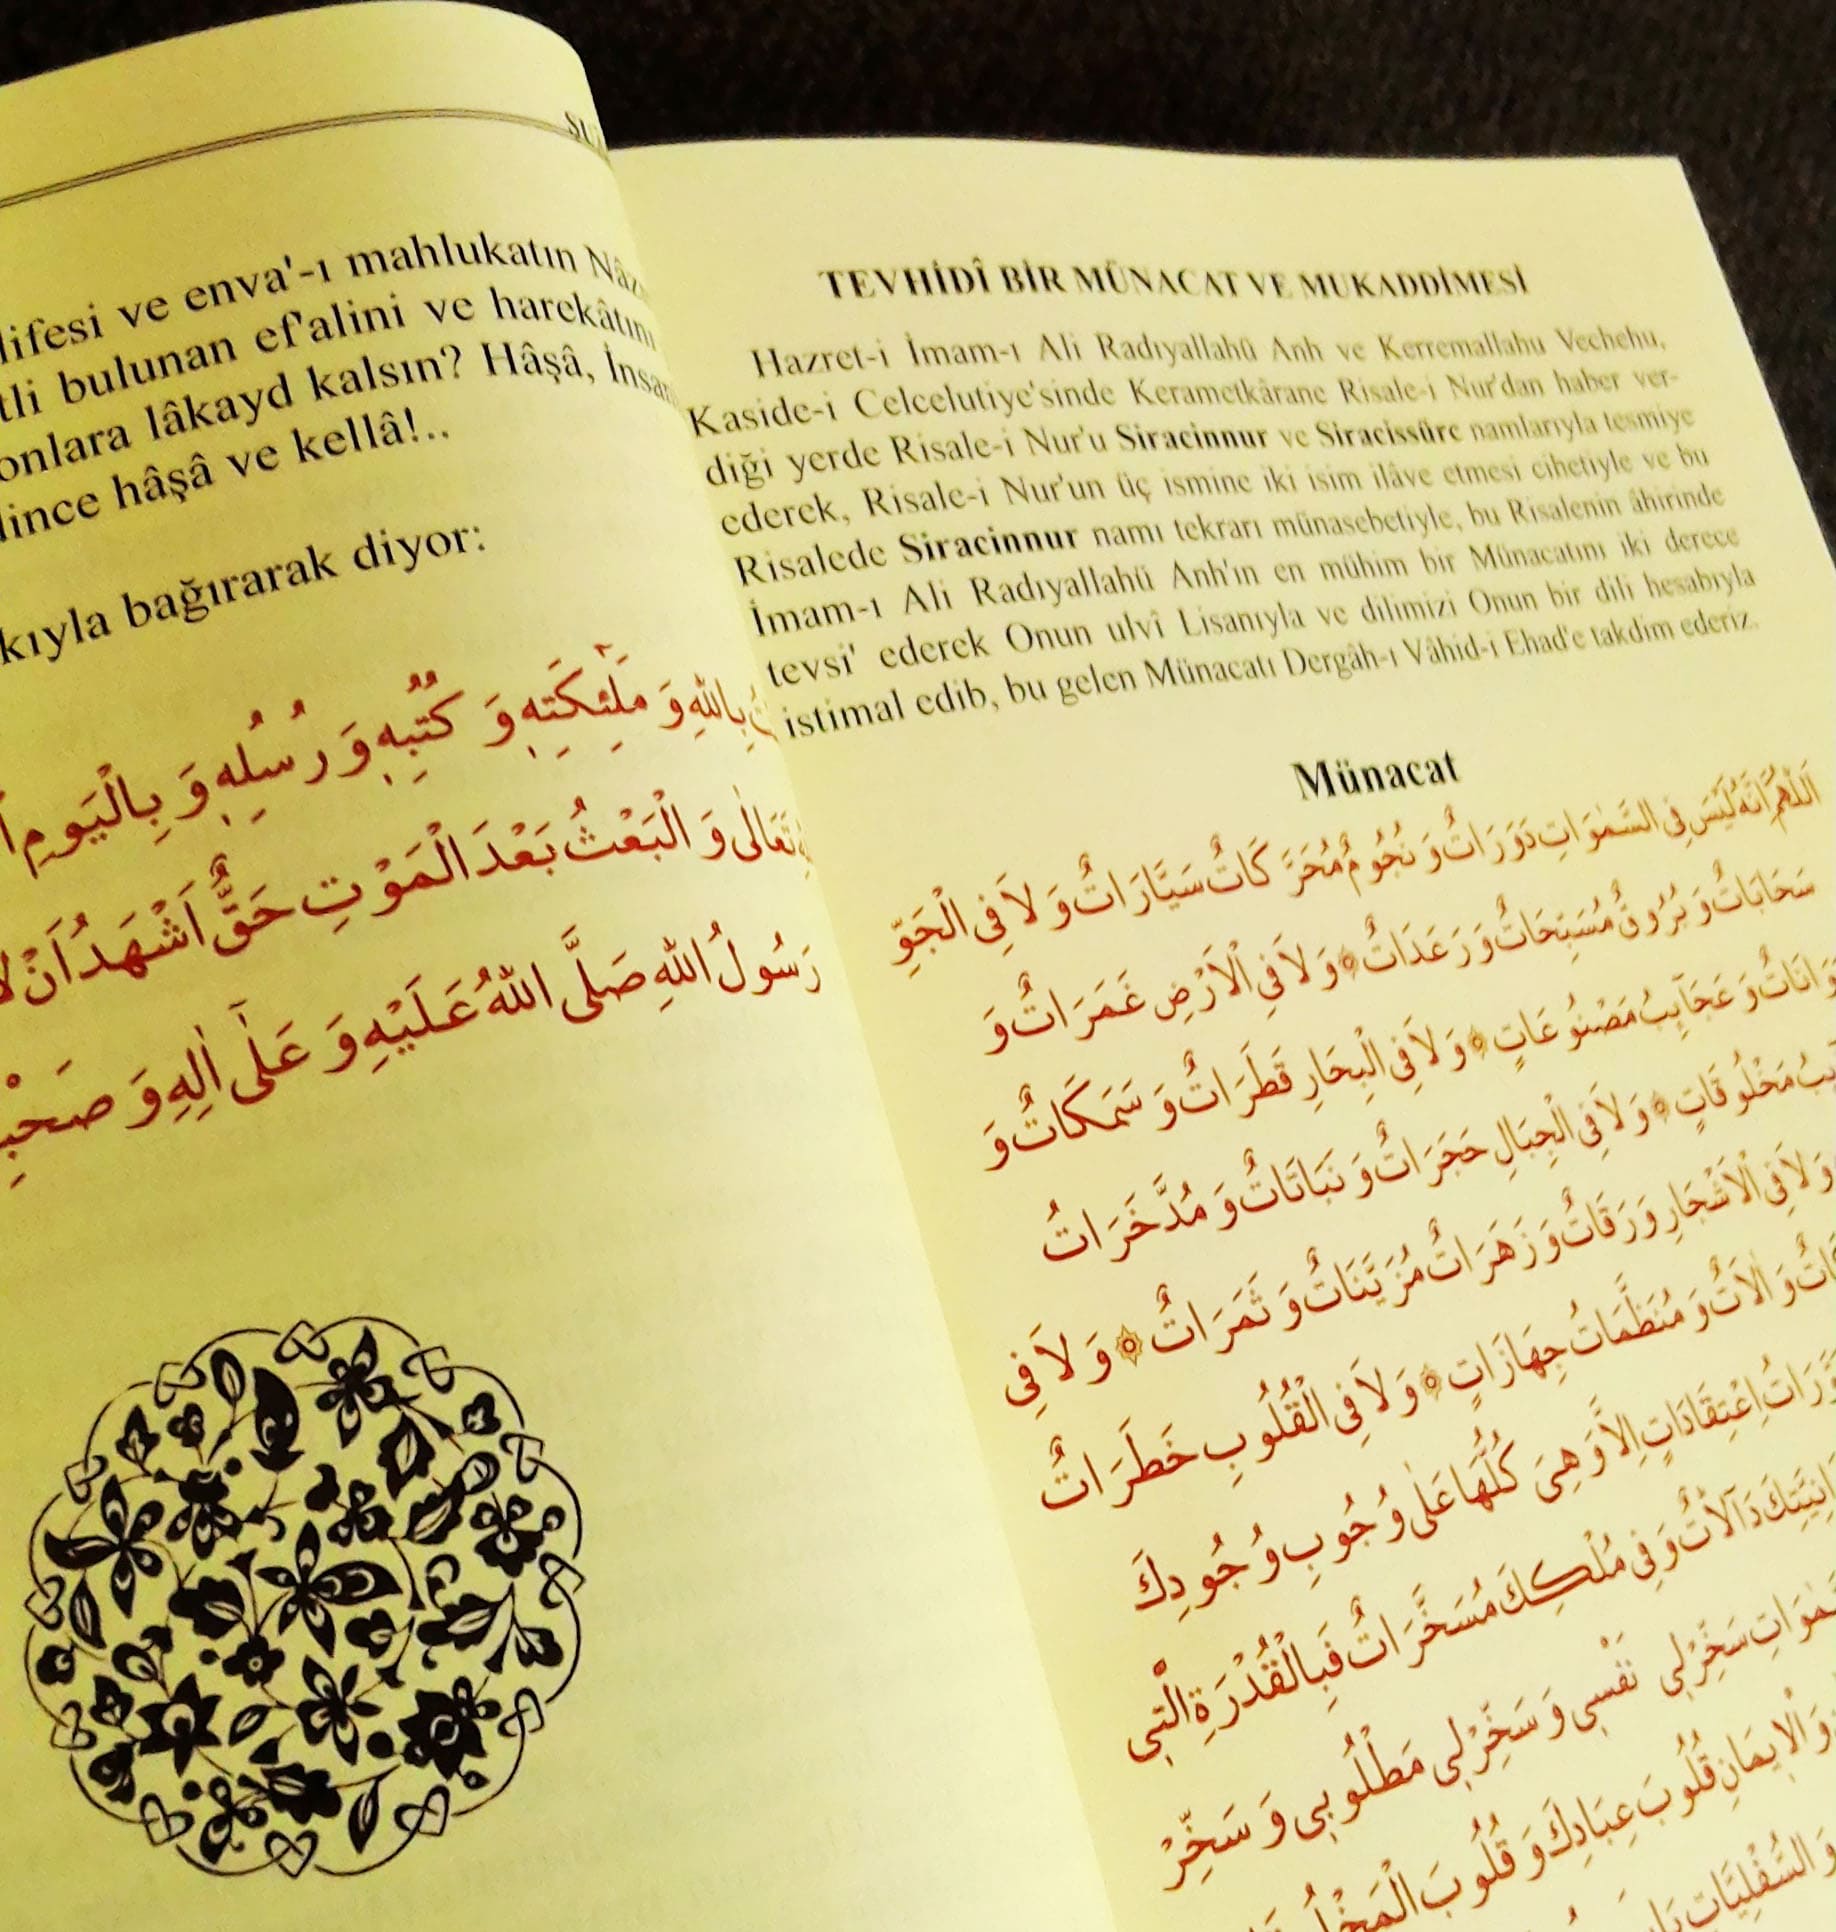 lifesi ve enva'-ı mahlukatın
tli bulunan ef'alini ve harekâtını
onlara lâkayd kalsın? Hâşâ,
lince hâşâ ve kellâ!..
kıyla bağırarak diyor:
بِاللّٰهِ وَ مَلٰٓئِكَتِهٖ وَ كُتُبِهٖ وَ رُسُلِهٖ وَ بِالْيَوْمِ
تَعَالٰى وَ الْبَعْثُ بَعْدَ الْمَوْتِ حَقٌّ اَشْهَدُ اَنْ
رَسُولُ اللّٰهِ صَلَّى اللّٰهُ عَلَيْهِ وَ عَلٰٓى اٰلِهِ وَ
TEVHİDÎ BİR MÜNACAT VE MUKADDİMESİ
Hazret-i İmam-ı Ali Radıyallahü Anh ve Kerremallahu Vechehu,
Kaside-i Celcelutiye'sinde Kerametkârane Risale-i Nur'dan haber ver-
diği yerde Risale-i Nur'u Siracinnur ve Siracissürc namlarıyla tesmiye
ederek, Risale-i Nur'un üç ismine iki isim ilâve etmesi cihetiyle ve bu
Risalede Siracinnur namı tekrarı münasebetiyle, bu Risalenin âhirinde
İmam-ı Ali Radıyallahü Anh'ın en mühim bir Münacatını iki derece
tevsi' ederek Onun ulvî Lisanıyla ve dilimizi Onun bir dili hesabıyla
istimal edib, bu gelen Münacatı Dergâh-ı Vâhid-i Ehad'e takdim ederiz.
Münacat
اَللّٰهُمَّ اِنَّهُ لَيْسَ فِى السَّمٰوَاتِ دَوَرَاتٌ وَ نُجُومٌ مُحَرَّ كَاتٌ سَيَّارَاتٌ وَ لاَ فِى الْجَوِّ
سَحَابَاتٌ وَ بُرُوقٌ مُسَبِّحَاتٌ وَ رَعَدَاتٌ ۞ وَ لاَ فِى الْاَرْضِ غَمَرَاتٌ وَ
وَ عَجَاۤيِبُ مَصْنُوعَاتٍ ۞ وَ لاَ فِى الْبِحَارِ قَطَرَاتٌ وَ سَمَكَاتٌ وَ
مَخْلُوقَاتٍ ۞ وَ لاَ فِى الْجِبَالِ حَجَرَاتٌ وَ نَبَاتَاتٌ وَ مُدَّخَرَاتُ
وَ لاَ فِى الْاَشْجَارِ وَرَقَاتٌ وَ زَهَرَاتٌ مُزَيَّنَاتٌ وَ ثَمَرَاتٌ ۞ وَ لاَ فِى
وَ اٰلاَتٌ وَ مُنَظَّمَاتُ جِهَازَاتٍ ۞ وَ لاَ فِى الْقُلُوبِ خَطَرَاتٌ
اِعْتِقَادَاتٍ اِلاَّ وَ هِىَ كُلُّهَا عَلٰى وُجُوبِ وُجُودِكَ
دَاۤلاَّتٌ وَ فِى مُلْكِكَ مُسَخَّرَاتٌ فَبِالْقُدْرَةِ الَّتِى
سَخِّرْ لِى نَفْسِى وَ سَخِّرْ لِى مَطْلُوبِى وَ سَخِّرْ
وَ الْاِيمَانِ قُلُوبَ عِبَادِكَ وَ قُلُوبَ
وَ السُّفْلِيَّاتِ